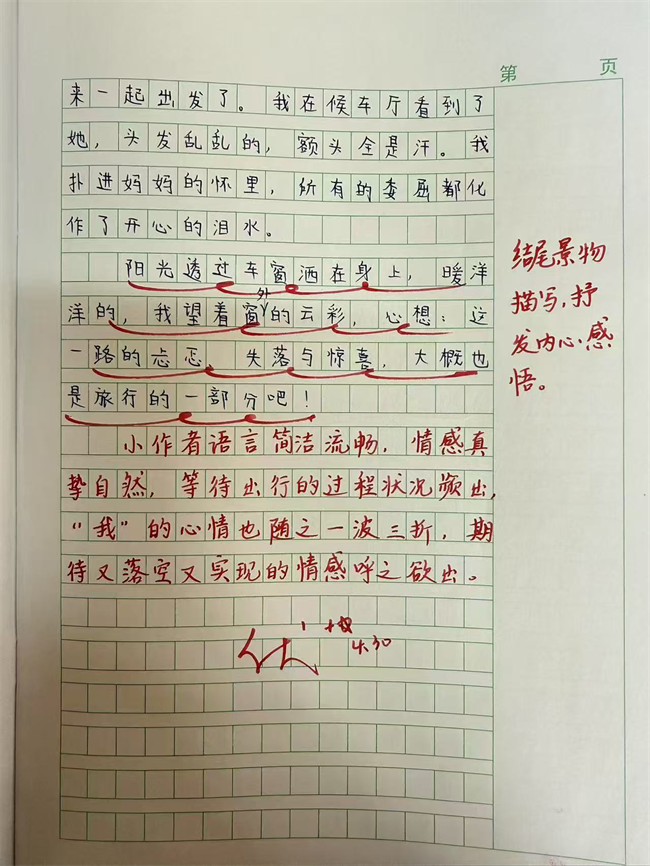 第 页
来一起出发了。我在候车厅看到了
她，头发乱乱的，额头全是汗。我
扑进妈妈的怀里，所有的委屈都化
作了开心的泪水。
阳光透过车窗洒在身上，暖洋
洋的，我望着窗外的云彩，心想：这
一路的忐忑、失落与惊喜，大概也
是旅行的一部分吧！
小作者语言简洁流畅，情感真
挚自然，等待出行的过程状况频出，
“我”的心情也随之一波三折，期
待又落空又实现的情感呼之欲出。
优
4.30
结尾景物
描写，抒
发内心感
悟。